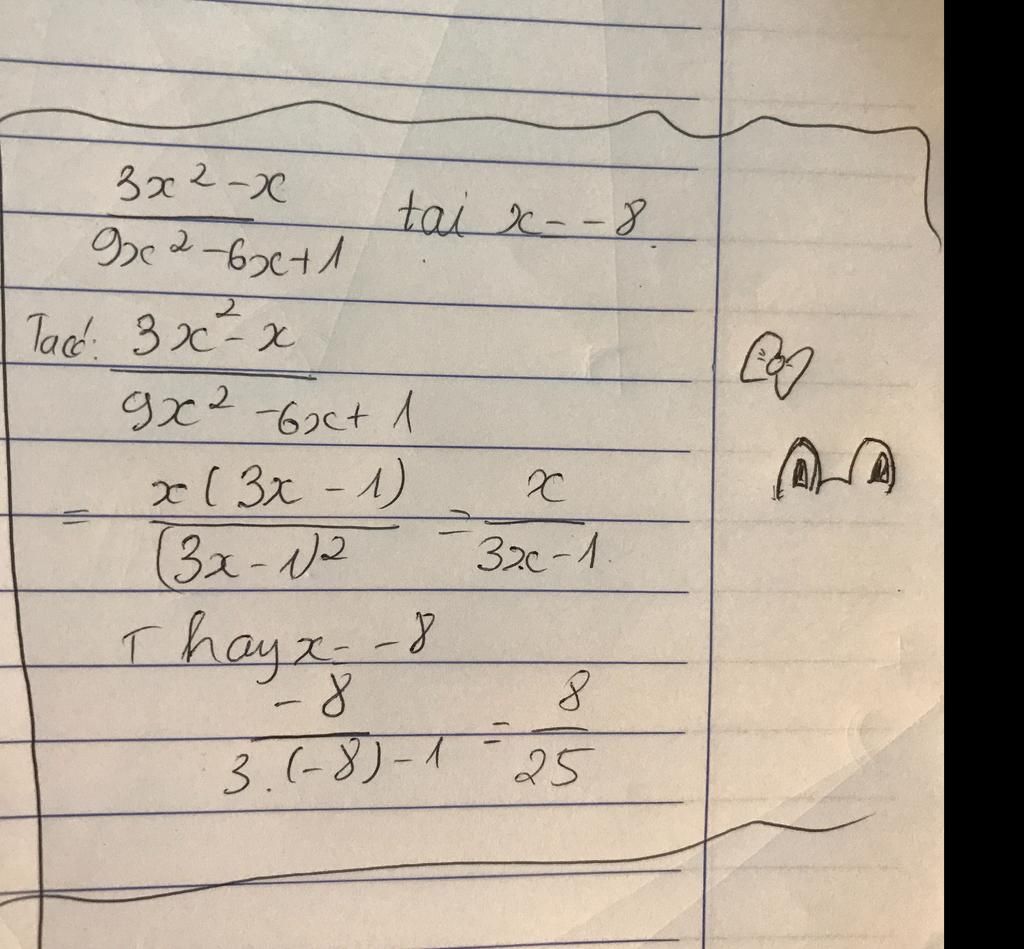 3x² - x / 9x² - 6x + 1 tại x = -8.
Ta có: 3x² - x / 9x² - 6x + 1
= x(3x - 1) / (3x - 1)² = x / 3x - 1.
Thay x = -8
-8 / 3.(-8) - 1 = 8 / 25